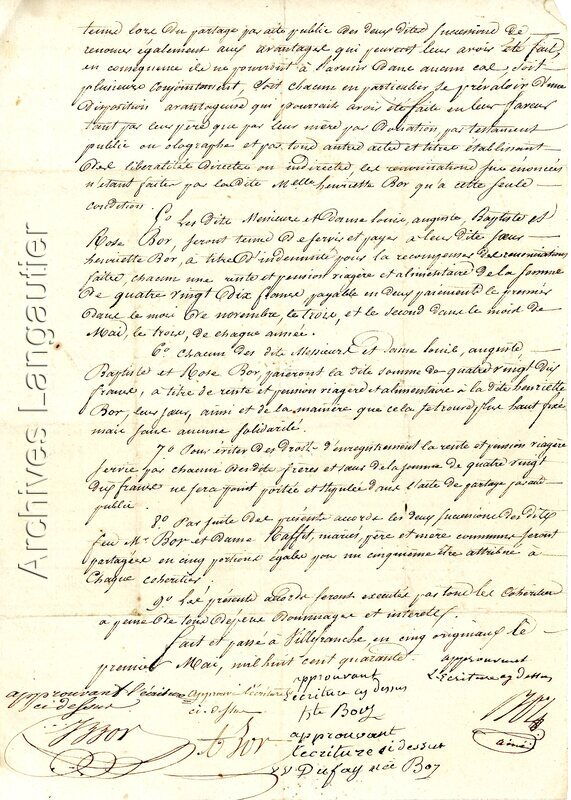 tenue lors du partage par acte public des deux dites successions de
renoncer également aux avantages qui peuvent leur avoir été fait,
en conséquence ils ne pourront à l'avenir dans aucun cas, soit
plusieurs conjointement, soit chacun en particulier se prévaloir d'une
disposition avantageuse qui pourrait avoir été faite en leur faveur
tant par leur père que par leur mère par donation par testament
public ou olographe et par tous autres actes et titres établissant
des libéralités directes ou indirectes, les renonciations sus énoncées
n'étant faites par la dite Melle henriette Bor qu'à cette seule
condition.
5o Les dits Messieurs et Dame louis, auguste, Baptiste et
Rose Bor, seront tenus de servir et payer à leur dite sœur
henriette Bor, à titre d'indemnité pour la récompenser des renonciations
faites, chacun une rente et pension viagère et alimentaire de la somme
de quatre vingt dix francs, payable en deux paiements le premier
dans le mois de novembre, le trois, et le second dans le mois de
Mai, le trois, de chaque année.
6o chacun des dits Messieurs et Dame louis, auguste
Baptiste et Rose Bor, paieront la dite somme de quatre vingt dix
francs, à titre de rente et pension viagère et alimentaire à la dite henriette
Bor, leur sœur, ainsi et de la manière que cela se trouve plus haut fixé
mais sans aucune solidarité.
7o Pour éviter des droits d'enregistrement la rente et pension viagère
servie par chacun des dits frères et sœurs de la somme de quatre vingt
dix francs ne sera point portée et stipulée dans l'acte de partage par acte
public.
8o Par suite des présents accords les deux successions des dits
feu Mr Bor et Dame Raffit, mariés, père et mère communs seront
partagées en cinq portions égales pour un cinquième être attribué à
chaque cohéritier.
9o Les présents accords seront exécutés par tous les cohéritiers
à peine de tous dépens dommages et intérêts.
fait et passé à Villefranche en cinq originaux le
premier Mai, mil huit cent quarante.
approuvant l'écriture
ci dessus
Approuvé l'écriture
ci-dessus
approuvant
l'écriture cy dessus
approuvant
l'Ecriture cy dessus
Bor
A Bor
Bte Bor
Bor
ainé
approuvant
l'écriture si dessus
Dufay née Bor
Archives Langautier